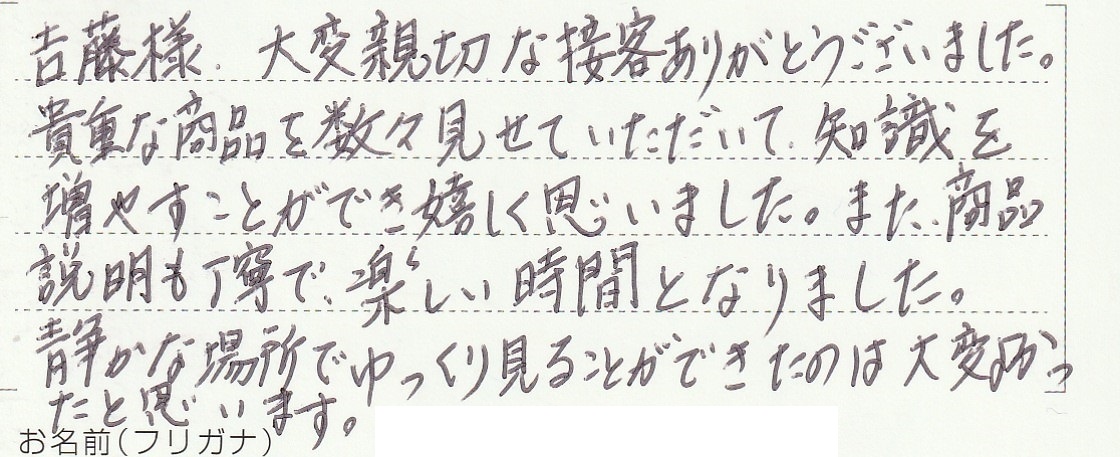 吉藤様. 大変親切な接客ありがとうございました。
貴重な商品を数々見せていただいて、知識を
増やすことができ嬉しく思いました。また、商品
説明も丁寧で、楽しい時間となりました。
静かな場所でゆっくり見ることができたのは大変よかっ
たと思います。
お名前(フリガナ)